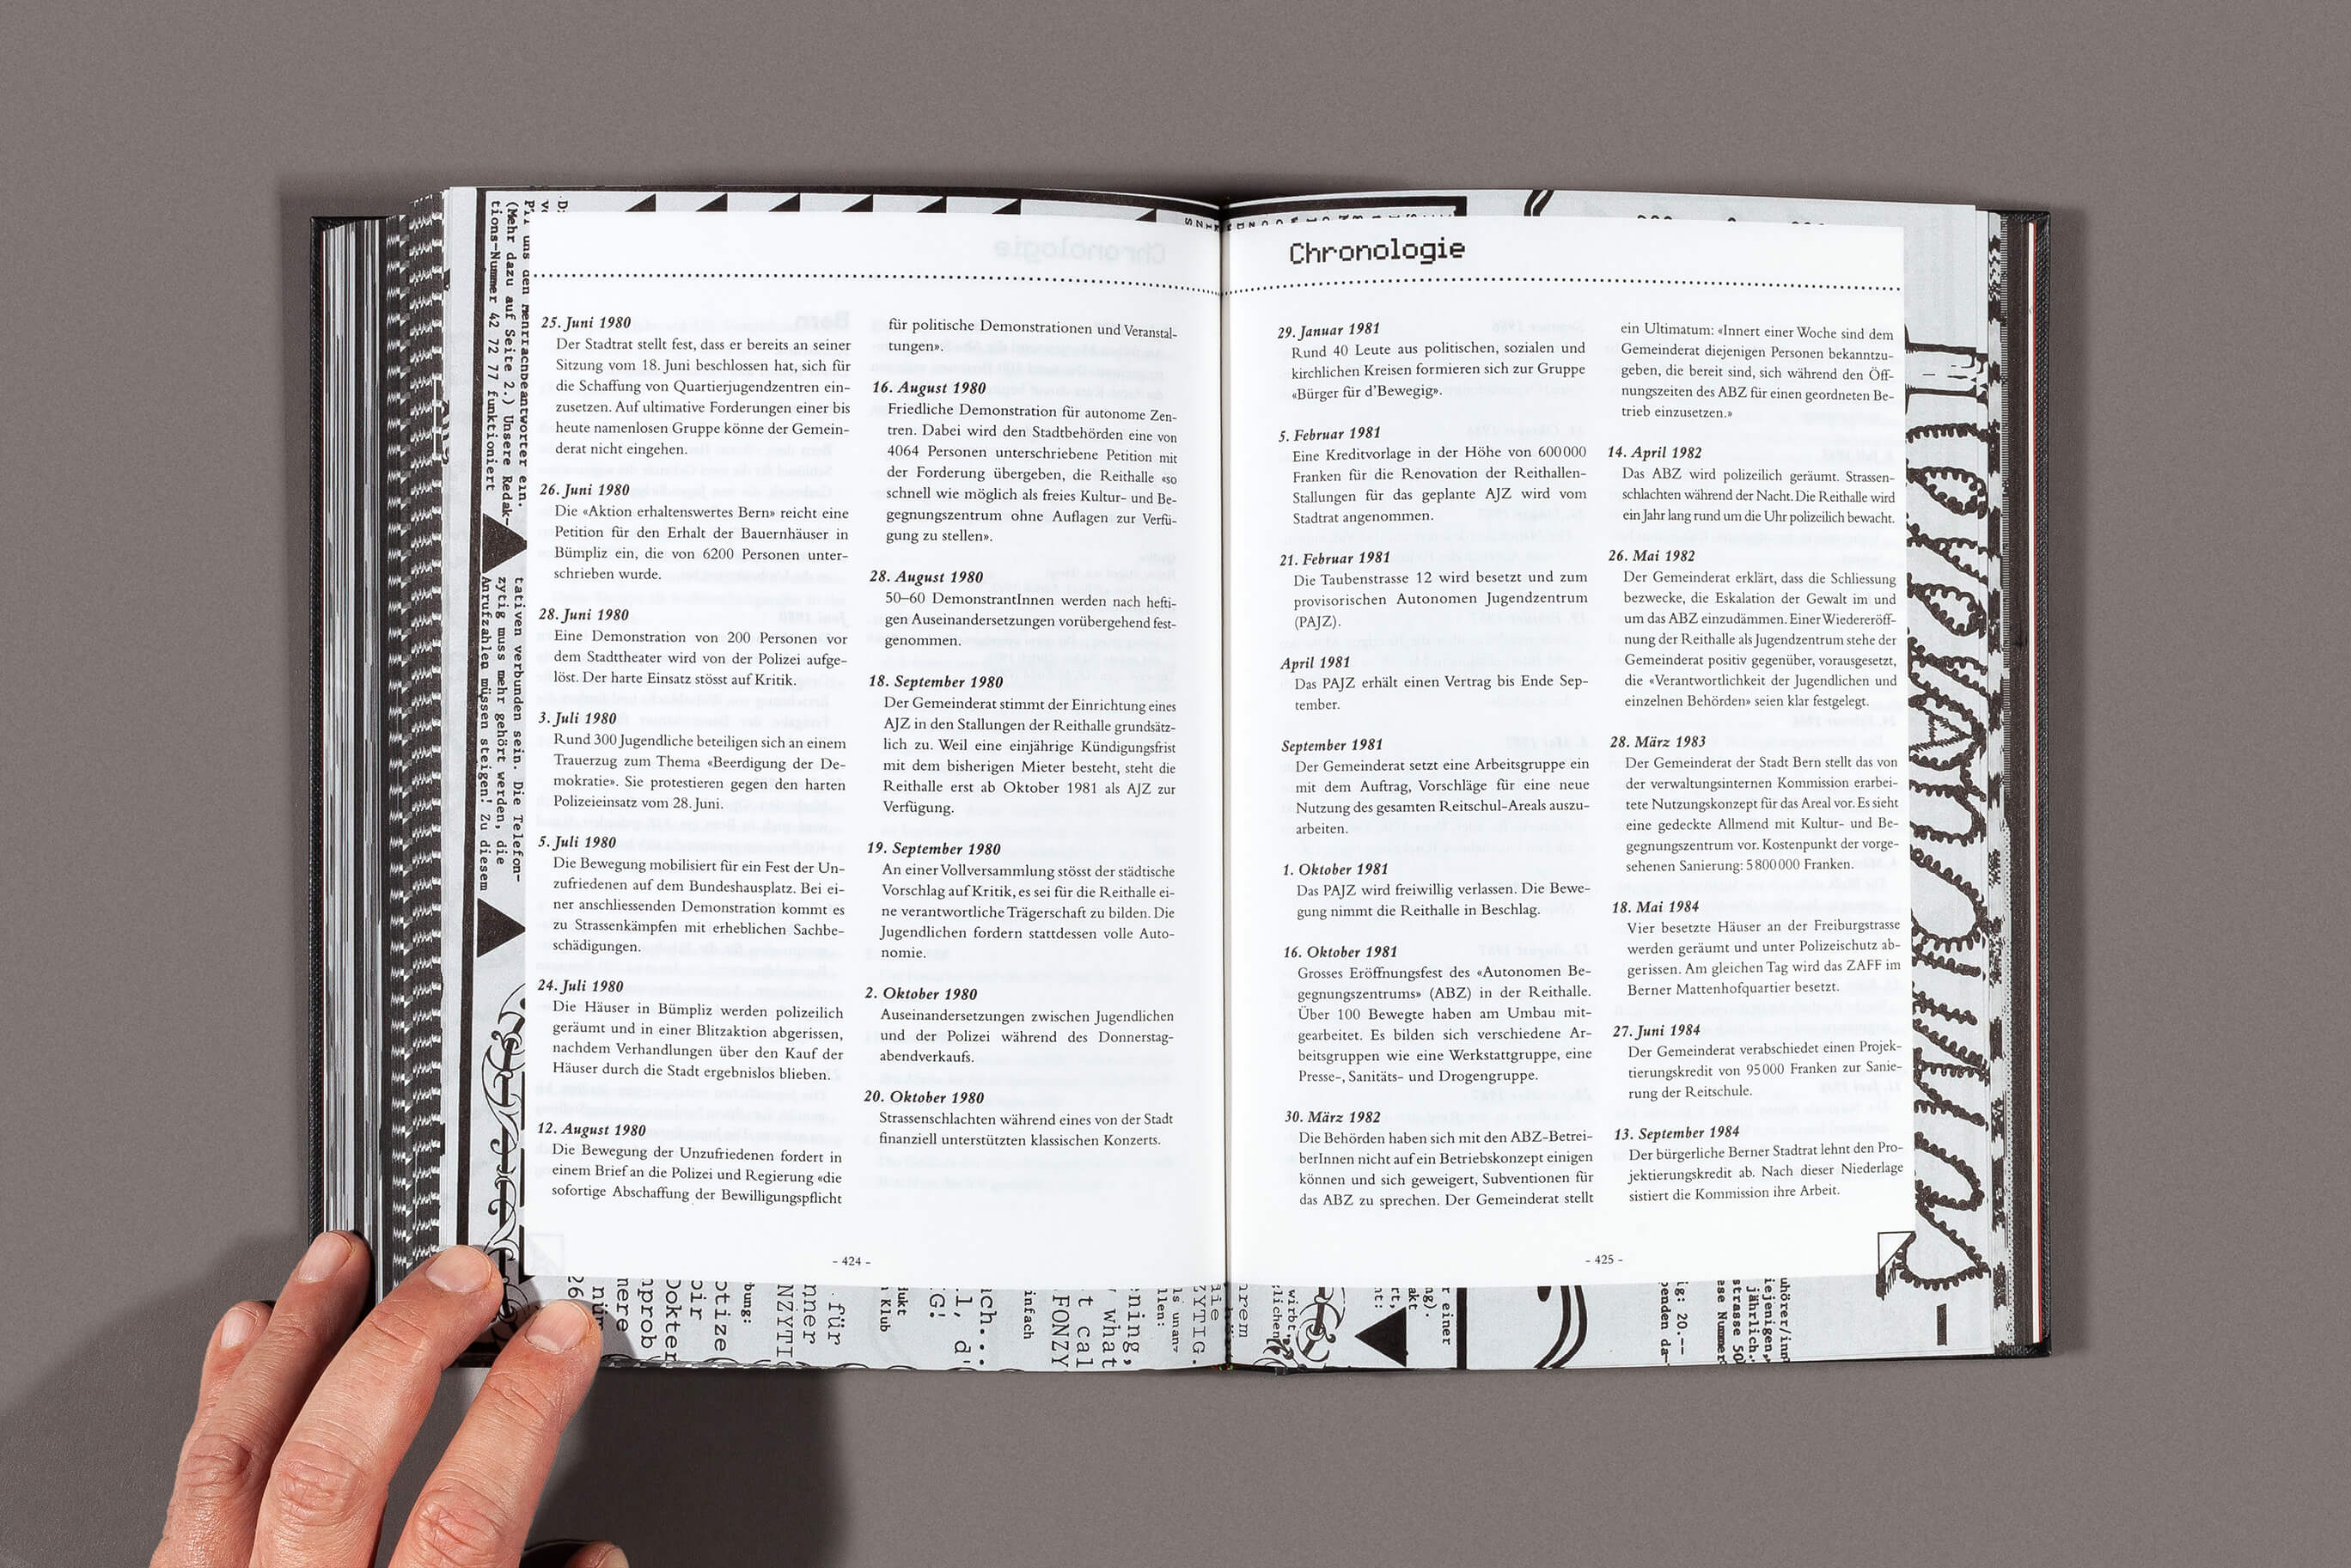 25. Juni 1980
Der Stadtrat stellt fest, dass er bereits an seiner
Sitzung vom 18. Juni beschlossen hat, sich für
die Schaffung von Quartierjugendzentren ein-
zusetzen. Auf ultimative Forderungen einer bis
heute namenlosen Gruppe könne der Gemein-
derat nicht eingehen.
26. Juni 1980
Die «Aktion erhaltenswertes Bern» reicht eine
Petition für den Erhalt der Bauernhäuser in
Bümpliz ein, die von 6200 Personen unter-
schrieben wurde.
28. Juni 1980
Eine Demonstration von 200 Personen vor
dem Stadttheater wird von der Polizei aufge-
löst. Der harte Einsatz stösst auf Kritik.
3. Juli 1980
Rund 300 Jugendliche beteiligen sich an einem
Trauerzug zum Thema «Beerdigung der De-
mokratie». Sie protestieren gegen den harten
Polizeieinsatz vom 28. Juni.
5. Juli 1980
Die Bewegung mobilisiert für ein Fest der Un-
zufriedenen auf dem Bundeshausplatz. Bei ei-
ner anschliessenden Demonstration kommt es
zu Strassenkämpfen mit erheblichen Sachbe-
schädigungen.
24. Juli 1980
Die Häuser in Bümpliz werden polizeilich
geräumt und in einer Blitzaktion abgerissen,
nachdem Verhandlungen über den Kauf der
Häuser durch die Stadt ergebnislos blieben.
12. August 1980
Die Bewegung der Unzufriedenen fordert in
einem Brief an die Polizei und Regierung «die
sofortige Abschaffung der Bewilligungspflicht
für politische Demonstrationen und Veranstal-
tungen».
16. August 1980
Friedliche Demonstration für autonome Zen-
tren. Dabei wird den Stadtbehörden eine von
4064 Personen unterschriebene Petition mit
der Forderung übergeben, die Reithalle «so
schnell wie möglich als freies Kultur- und Be-
gegnungszentrum ohne Auflagen zur Verfü-
gung zu stellen».
28. August 1980
50–60 DemonstrantInnen werden nach hefti-
gen Auseinandersetzungen vorübergehend fest-
genommen.
18. September 1980
Der Gemeinderat stimmt der Einrichtung eines
AJZ in den Stallungen der Reithalle grundsätz-
lich zu. Weil eine einjährige Kündigungsfrist
mit dem bisherigen Mieter besteht, steht die
Reithalle erst ab Oktober 1981 als AJZ zur
Verfügung.
19. September 1980
An einer Vollversammlung stösst der städtische
Vorschlag auf Kritik, es sei für die Reithalle ei-
ne verantwortliche Trägerschaft zu bilden. Die
Jugendlichen fordern stattdessen volle Auto-
nomie.
2. Oktober 1980
Auseinandersetzungen zwischen Jugendlichen
und der Polizei während des Donnerstag-
abendverkaufs.
20. Oktober 1980
Strassenschlachten während eines von der Stadt
finanziell unterstützten klassischen Konzerts.
- 424 -
Chronologie
29. Januar 1981
Rund 40 Leute aus politischen, sozialen und
kirchlichen Kreisen formieren sich zur Gruppe
«Bürger für d'Bewegig».
5. Februar 1981
Eine Kreditvorlage in der Höhe von 600 000
Franken für die Renovation der Reithallen-
Stallungen für das geplante AJZ wird vom
Stadtrat angenommen.
21. Februar 1981
Die Taubenstrasse 12 wird besetzt und zum
provisorischen Autonomen Jugendzentrum
(PAJZ).
April 1981
Das PAJZ erhält einen Vertrag bis Ende Sep-
tember.
September 1981
Der Gemeinderat setzt eine Arbeitsgruppe ein
mit dem Auftrag, Vorschläge für eine neue
Nutzung des gesamten Reitschul-Areals auszu-
arbeiten.
1. Oktober 1981
Das PAJZ wird freiwillig verlassen. Die Bewe-
gung nimmt die Reithalle in Beschlag.
16. Oktober 1981
Grosses Eröffnungsfest des «Autonomen Be-
gegnungszentrums» (ABZ) in der Reithalle.
Über 100 Bewegte haben am Umbau mit-
gearbeitet. Es bilden sich verschiedene Ar-
beitsgruppen wie eine Werkstattgruppe, eine
Presse-, Sanitäts- und Drogengruppe.
30. März 1982
Die Behörden haben sich mit den ABZ-Betrei-
berInnen nicht auf ein Betriebskonzept einigen
können und sich geweigert, Subventionen für
das ABZ zu sprechen. Der Gemeinderat stellt
ein Ultimatum: «Innert einer Woche sind dem
Gemeinderat diejenigen Personen bekanntzu-
geben, die bereit sind, sich während den Öff-
nungszeiten des ABZ für einen geordneten Be-
trieb einzusetzen.»
14. April 1982
Das ABZ wird polizeilich geräumt. Strassen-
schlachten während der Nacht. Die Reithalle wird
ein Jahr lang rund um die Uhr polizeilich bewacht.
26. Mai 1982
Der Gemeinderat erklärt, dass die Schliessung
bezwecke, die Eskalation der Gewalt im und
um das ABZ einzudämmen. Einer Wiedereröff-
nung der Reithalle als Jugendzentrum stehe der
Gemeinderat positiv gegenüber, vorausgesetzt,
die «Verantwortlichkeit der Jugendlichen und
einzelnen Behörden» seien klar festgelegt.
28. März 1983
Der Gemeinderat der Stadt Bern stellt das von
der verwaltungsinternen Kommission erarbei-
tete Nutzungskonzept für das Areal vor. Es sieht
eine gedeckte Allmend mit Kultur- und Be-
gegnungszentrum vor. Kostenpunkt der vorge-
sehenen Sanierung: 5 800 000 Franken.
18. Mai 1984
Vier besetzte Häuser an der Freiburgstrasse
werden geräumt und unter Polizeischutz ab-
gerissen. Am gleichen Tag wird das ZAFF im
Berner Mattenhofquartier besetzt.
27. Juni 1984
Der Gemeinderat verabschiedet einen Projek-
tierungskredit von 95 000 Franken zur Sanie-
rung der Reitschule.
13. September 1984
Der bürgerliche Berner Stadtrat lehnt den Pro-
jektierungskredit ab. Nach dieser Niederlage
sistiert die Kommission ihre Arbeit.
- 425 -
(Mehr dazu auf Seite 2.) Unsere Redak-
tions-Nummer 42 72 77 funktioniert
tativen verbunden sein. Die Telefon-
zytig muss mehr gehört werden, die
Anrufzahlen müssen steigen! Zu diesem